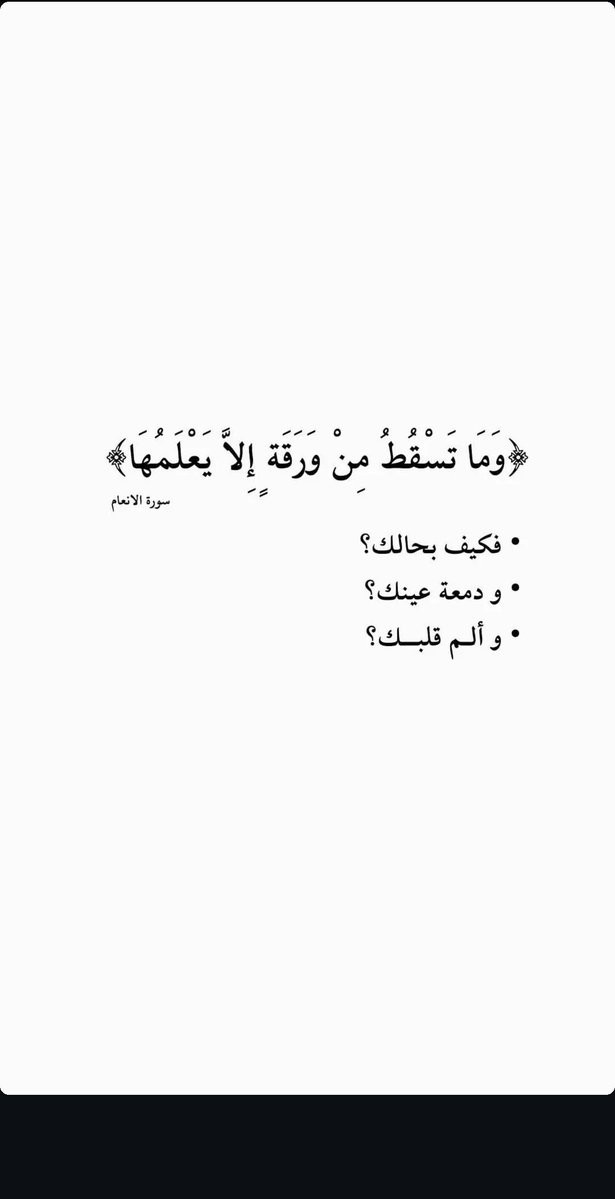 ﴿وَمَا تَسْقُطُ مِنْ وَرَقَةٍ إِلاَّ يَعْلَمُهَا﴾
سورة الانعام
• فكيف بحالك؟
• و دمعة عينك؟
• و ألـم قلبـــك؟